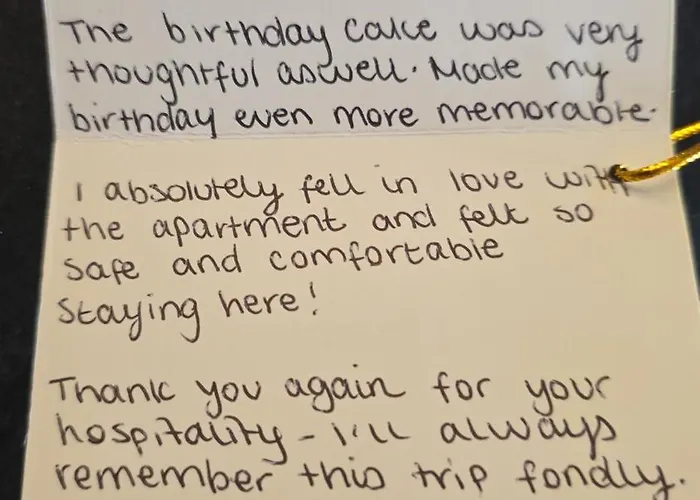 The birthday cake was very
thoughtful aswell. Made my
birthday even more memorable.
I absolutely fell in love with
the apartment and felt so
safe and comfortable
staying here!
Thank you again for your
hospitality - I'll always
remember this trip fondly.